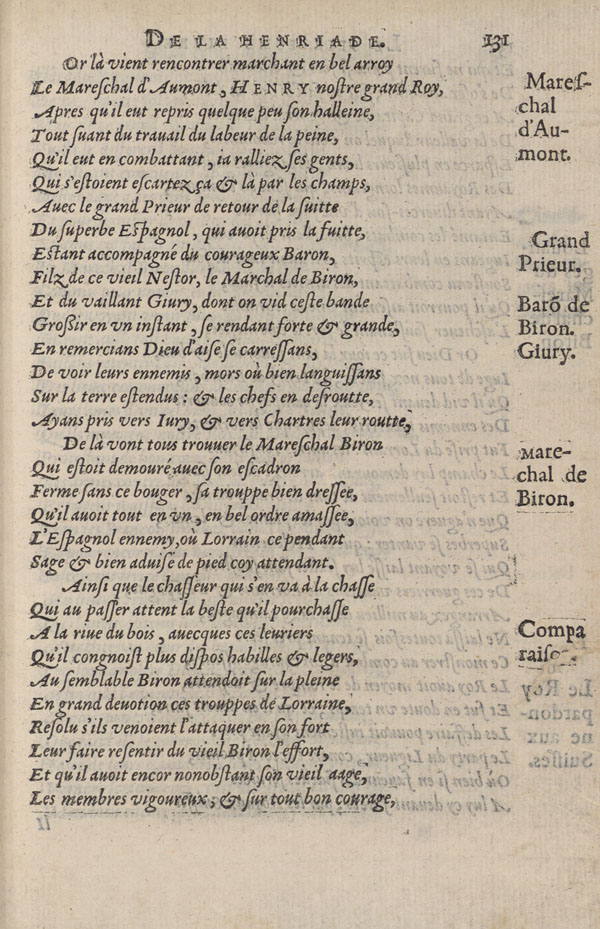 DE LA HENRIADE. 131
Or là vient rencontrer marchant en bel arroy
Le Mareſchal d'Aumont, HENRY noſtre grand Roy,
Apres qu'il eut repris quelque peu ſon halleine,
Tout ſuant du travail du labeur de la peine,
Qu'il eut en combattant, ia ralliez ſes gents,
Qui s'eſtoient eſcartez ça & là par les champs,
Auec le grand Prieur de retour de la ſuitte
Du ſuperbe Eſpagnol, qui auoit pris la fuitte,
Eſtant accompagné du courageux Baron,
Filz de ce vieil Neſtor, le Marchal de Biron,
Et du vaillant Giury, dont on vid ceſte bande
Groſſir en vn inſtant, ſe rendant forte & grande,
En remercians Dieu d'aiſe ſe carreſſans,
De voir leurs ennemis, mors où bien languiſſans
Sur la terre eſtendus : & les chefs en deſroutte,
Ayans pris vers Iury, & vers Chartres leur routte,
De là vont tous trouuer le Mareſchal Biron
Qui eſtoit demouré auec ſon eſcadron
Ferme ſans ce bouger, ſa trouppe bien dreſſee,
Qu'il auoit tout en vn, en bel ordre amaſſee,
L'Eſpagnol ennemy, où Lorrain ce pendant
Sage & bien aduiſe de pied coy attendant.
Ainſi que le chaſſeur qui s'en va à la chaſſe
Qui au paſſer attent la beſte qu'il pourchaſſe
A la riue du bois, auecques ces leuriers
Qu'il congnoiſt plus diſpos habilles & legers,
Au ſemblable Biron attendoit ſur la pleine
En grand deuotion ces trouppes de Lorraine,
Reſolu s'ils venoient l'attaquer en ſon fort
Leur faire reſentir du vieil Biron l'effort,
Et qu'il auoit encor nonobſtant ſon vieil aage,
Les membres vigoureux, & ſur tout bon courage,
Mareſ-
chal
d'Au-
mont.
Grand
Prieur.
Barō de
Biron.
Giury.
Mare-
chal de
Biron.
Compa
raiſo